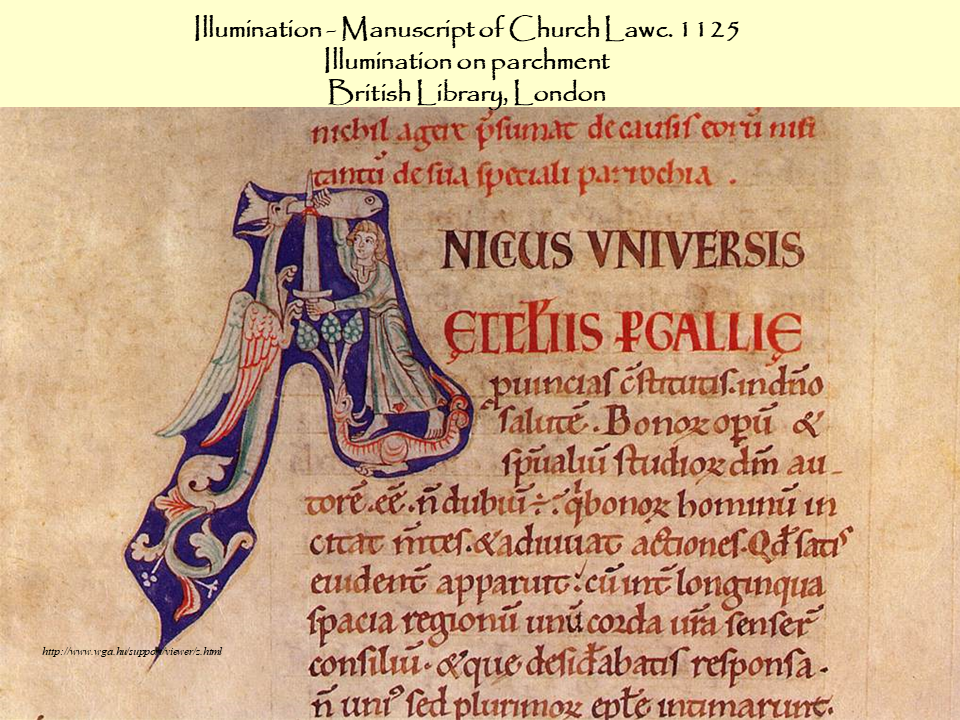 Illumination - Manuscript of Church Lawc. 1125
Illumination on parchment
British Library, London
nichil agere p̄sumat de causis eorū nisi
tantū de sua speciali parrochia .
A
NICIUS VNIVERSIS
GALLIĘ
puincias c̄stitutis . in dn̄o
salutē . Bonoꝝ opū &
studioꝝ dm̄ au-
torē . eē . n̄ dubiū ÷ . bonoꝝ hominū in
citat m̄tes . & adiuuat actiones . Qd̄ satis
euident̄ apparuit : cū int̄ longinqua
spacia regionū unū corda ur̄a senser̄
consiliū . & que desid̄abatis responsa .
n̄ uni᾿ sed plurimoꝝ ep̄łe intimarunt .
http://www.wga.hu/support/viewer/z.html